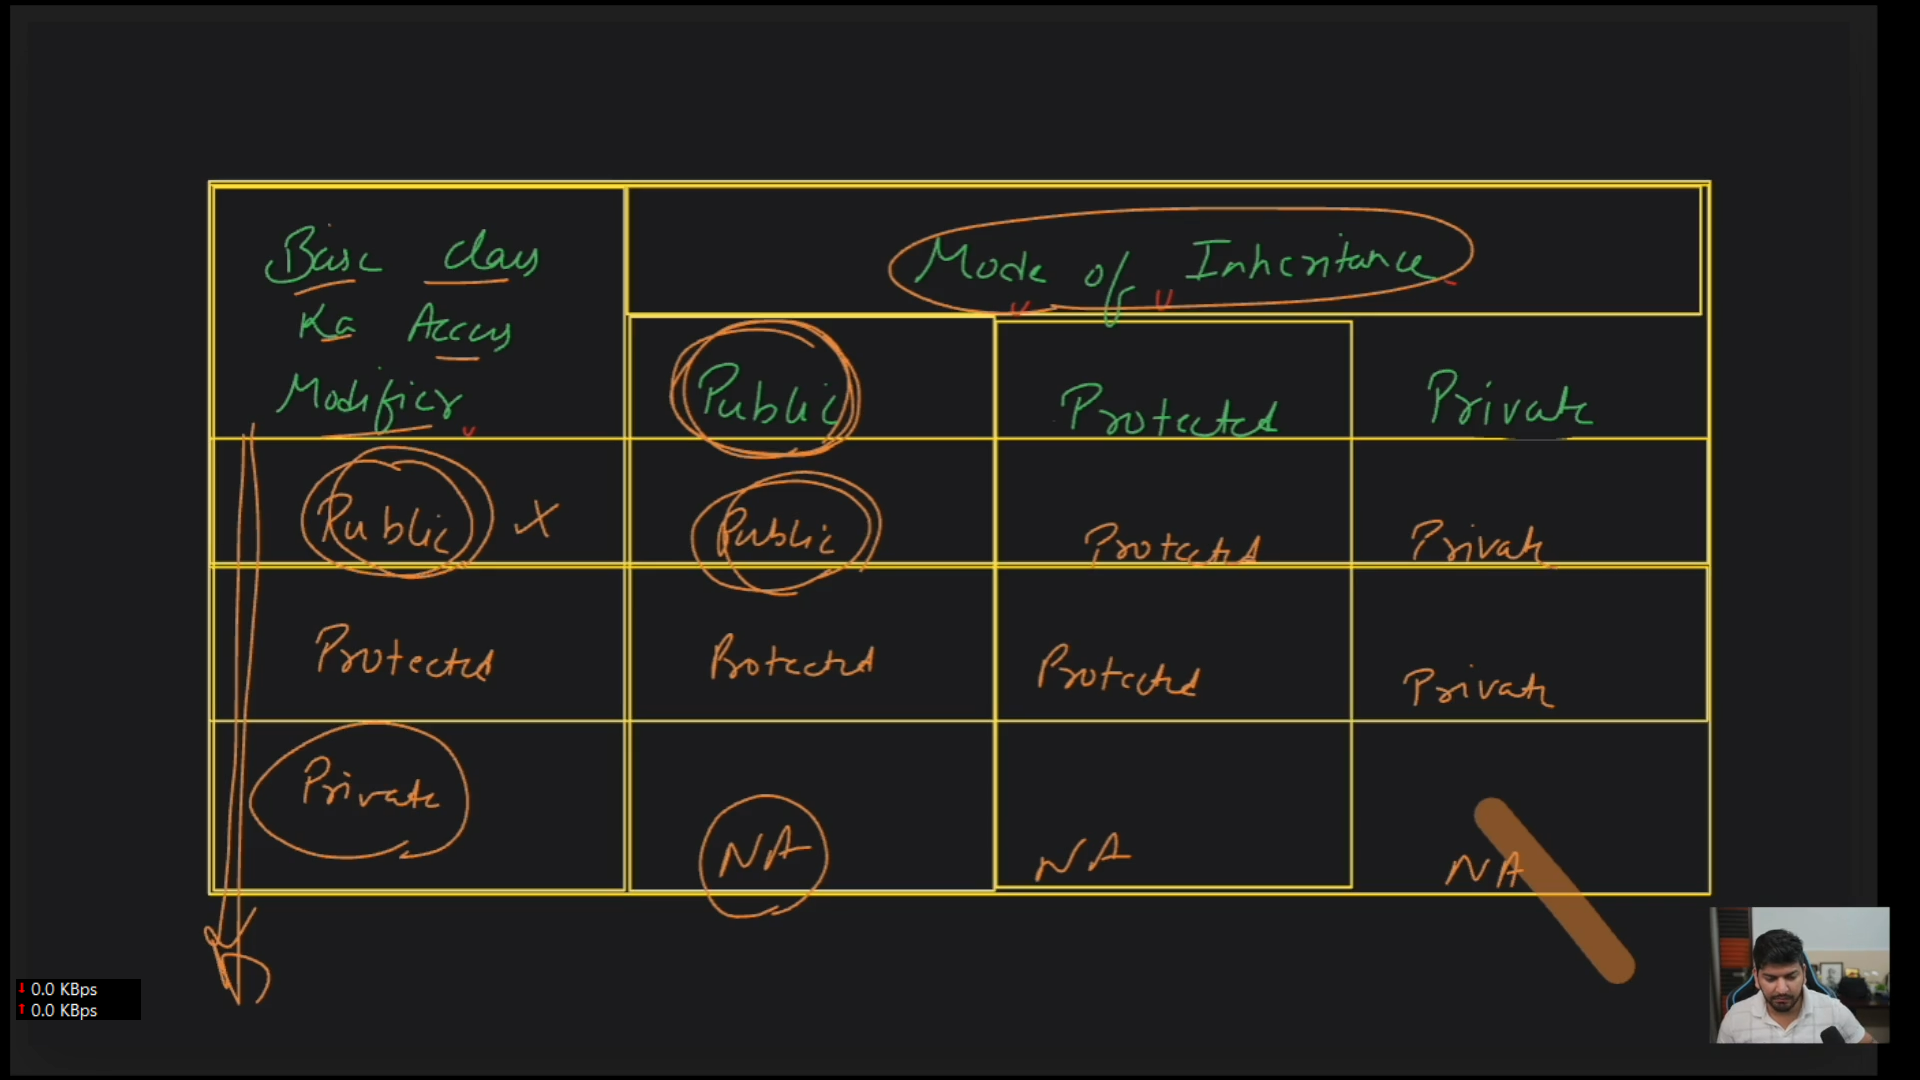 Base class
Ka Access
Modifier
Mode of Inheritance
Public Protected Private
Public X Public Protected Private
Protected Protected Protected Private
Private NA NA NA
↓ 0.0 KBps
↑ 0.0 KBps